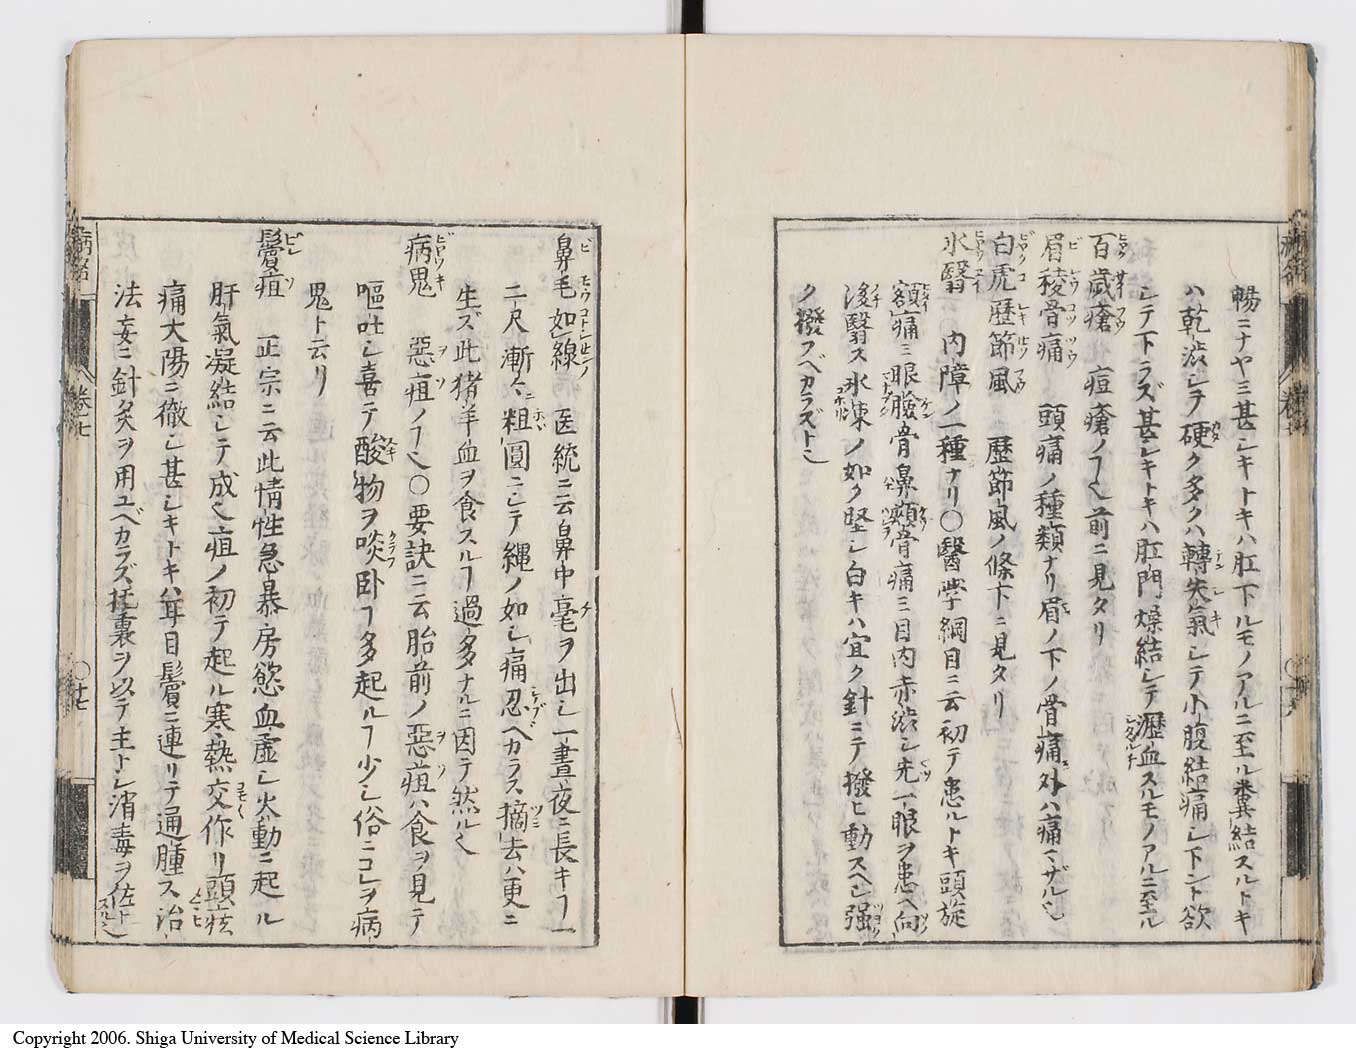 暢ニナヤミ甚シキトキハ肛下ルモノアルニ至ル糞結スルトキ
ハ乾渋シテ硬ク多クハ轉失氣シテ小腹結痛シ下ント欲
シテ下ラズ甚シキトキハ肛門燥結シテ瀝血スルモノアルニ至ル
百歳瘡 痘瘡ノヿ也前ニ見タリ
眉稜骨痛 頭痛ノ種類ナリ眉ノ下ノ骨痛外ハ痛マザル也
白虎歷節風 歷節風ノ條下ニ見タリ
氷翳 内障ノ一種ナリ〇醫学綱目ニ云初テ患ルトキ頭旋
額痛ミ眼瞼骨鼻頬骨痛ミ目内赤渋シ先一眼ヲ患ヘ向
後翳ス氷凍ノ如ク堅シ白キハ宜ク針ニテ撥ヒ動スベシ强
ク撥フベカラズト也
鼻毛如線 医統ニ云鼻中毫ヲ出シ一晝夜ニ長キヿ一
二尺漸々ニ粗圓ニシテ縄ノ如シ痛忍ベカラス摘去ハ更ニ
生ズ此猪羊血ヲ食スルヿ過多ナルニ因テ然ル也
病鬼 惡疽ノヿ也〇要訣ニ云胎前ノ惡疽ハ食ヲ見テ
嘔吐シ喜テ酸物ヲ啖卧ヿ多起ルヿ少シ俗ニコレヲ病
鬼ト云リ
鬢疽 正宗ニ云此情性急暴房慾血虚シ火動ニ起ル
肝氣凝結シテ成也疽ノ初テ起ル寒熱交作リ頭眩
痛大陽ニ徹シ甚シキトキハ耳目鬢ニ連リテ通腫ス治
法妄ニ針灸ヲ用ユベカラズ托裏ヲ以テ主トシ消毒ヲ佐トスル也
病名
巻二七
〇廿七